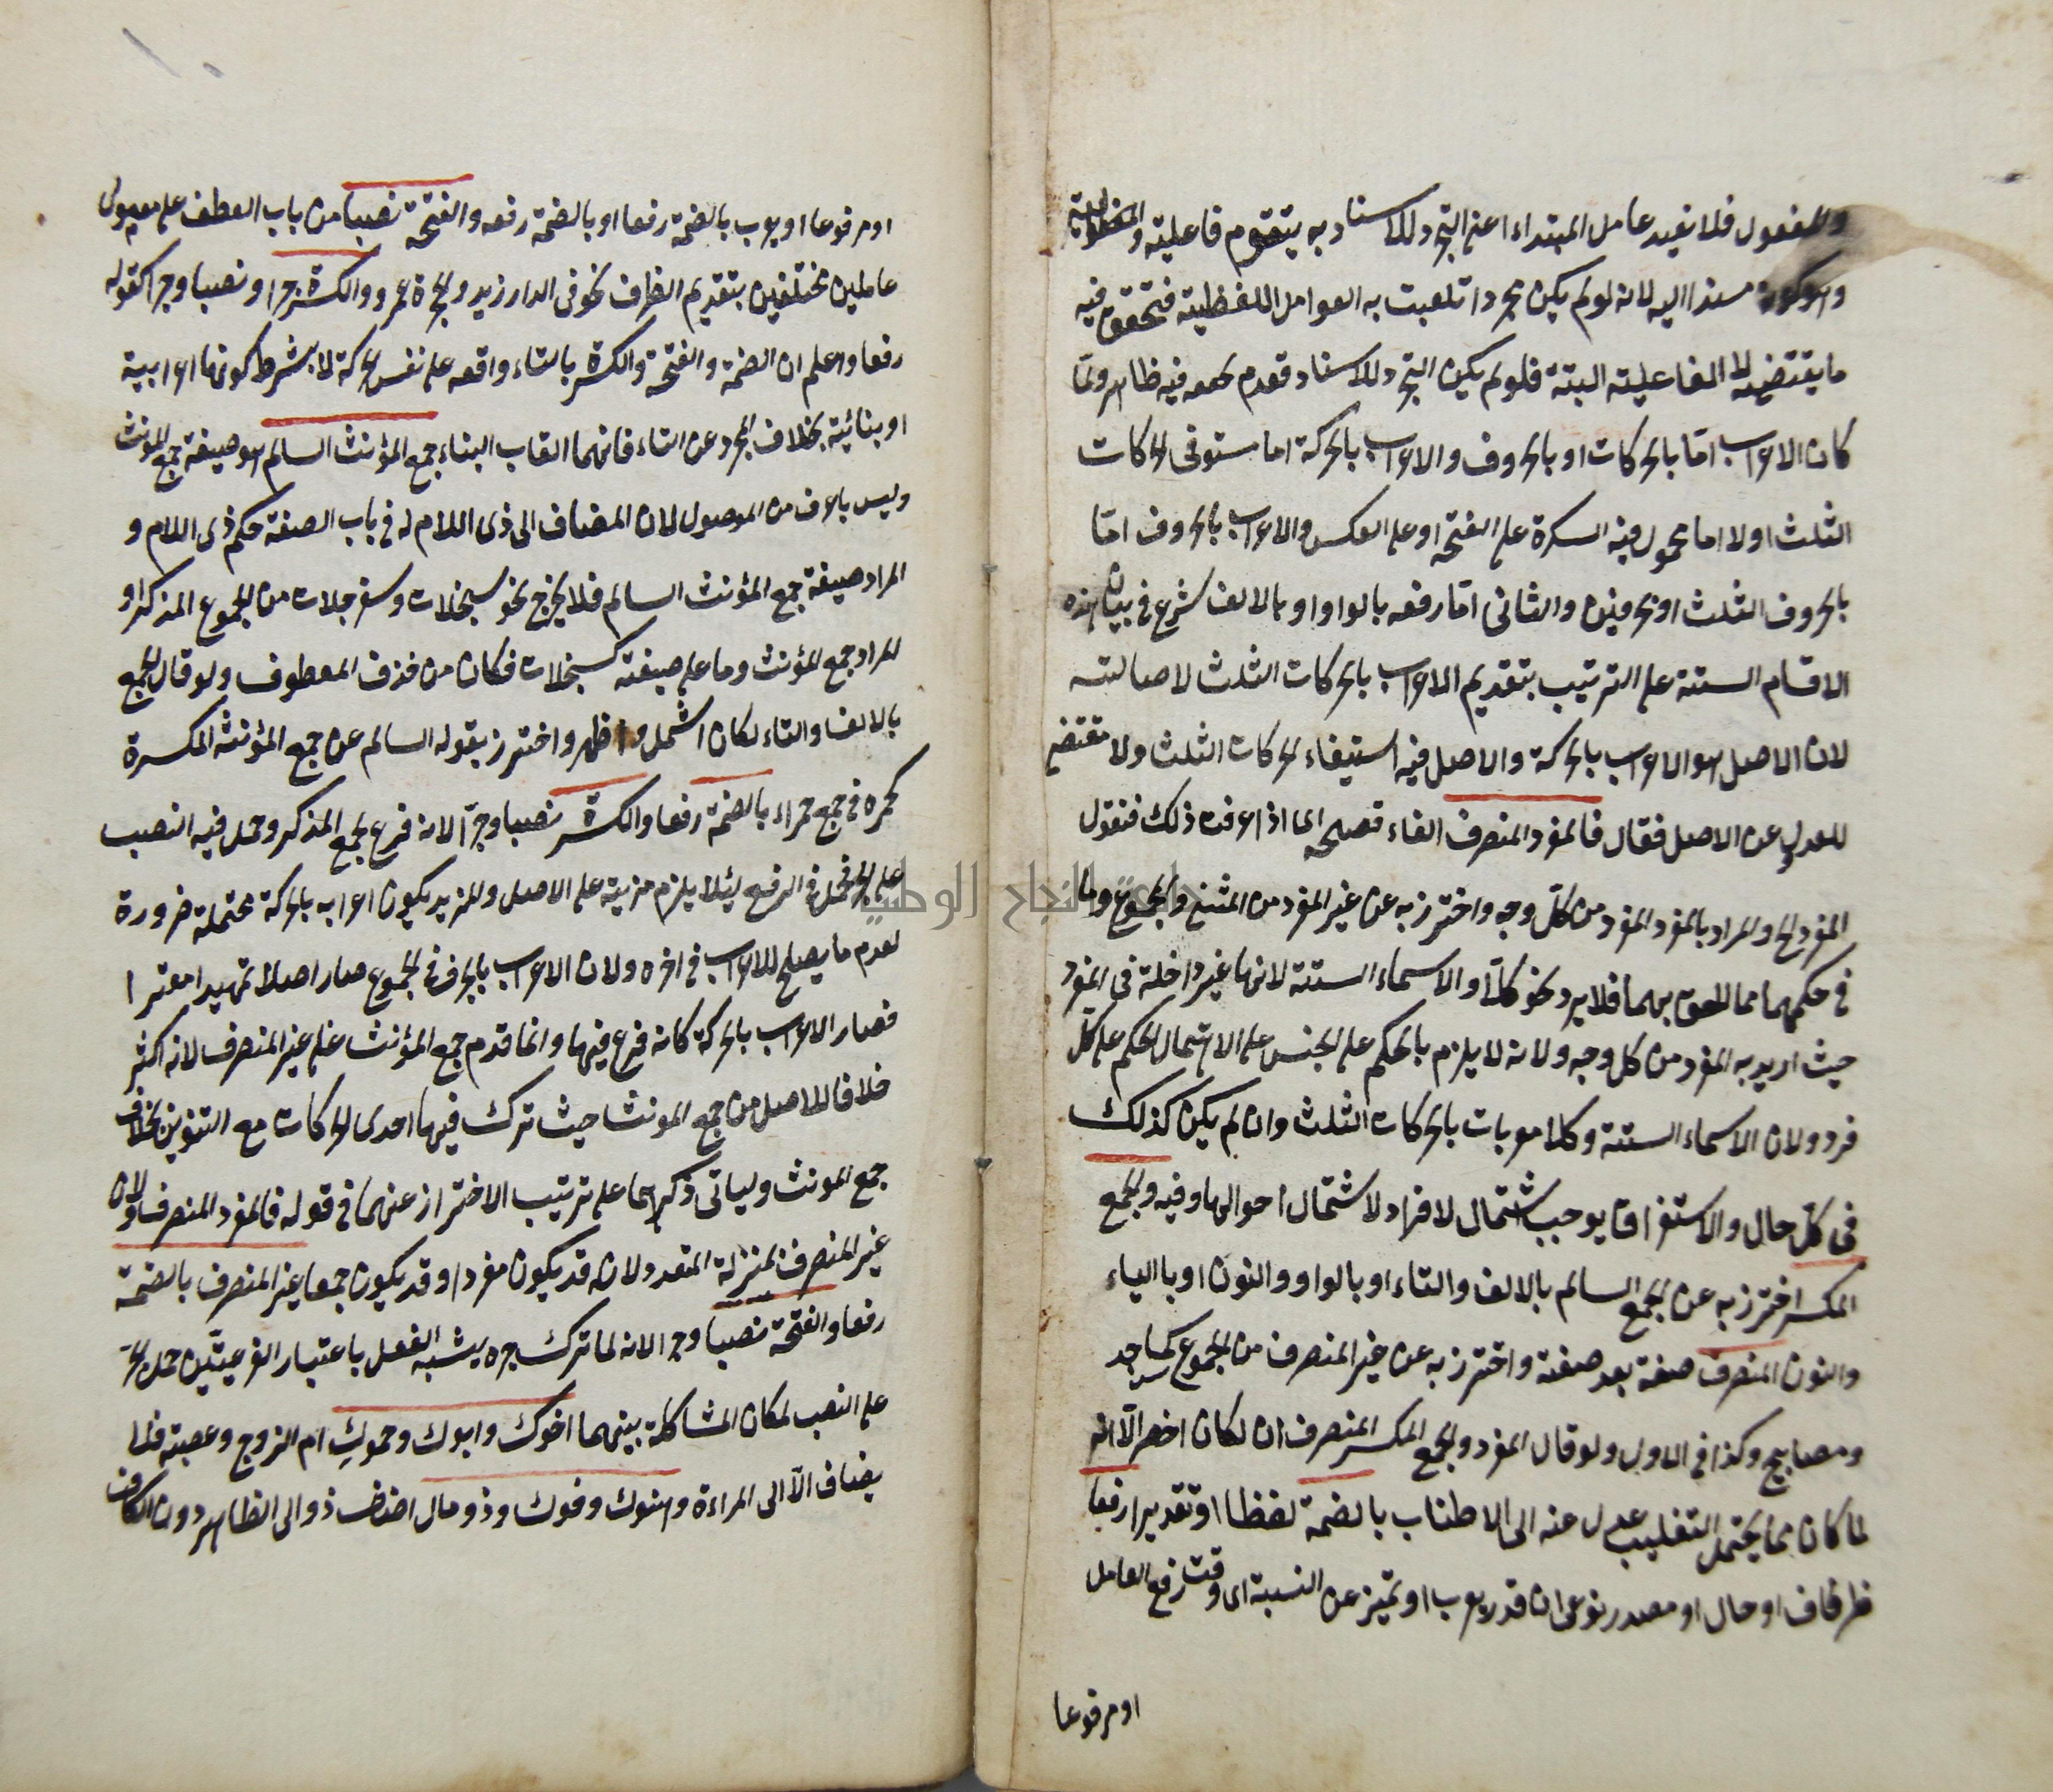 والمفعول فلا نفيد عامل المبتداء اعنى التجرد للاسناد به يتقوم فاعليته والمفعولية
وهو كونه مسندا اليه لانه لو لم يكن مجردا تلعبت به العوامل اللفظية فتحقق فيه
ما يقتضيه لا الفاعلية البتة فلو لم يكن التجرد للاسناد فيه ظاهر ولما
كان الاعراب اما بالحركات او بالحروف والاعراب بالحركة اما مستوفى الحركات
الثلث اولا اما محمول فيه الكسرة على الفتحة او على العكس والاعراب بالحروف امّا
بالحروف الثلث او بحرفين والثانى امّا رفعه بالواو او بالالف شرع فى بيان هذه
الاقسام الستة على الترتيب بتقديم الاعراب بالحركات الثلث لاصالته
لان الاصل هو الاعراب بالحركة والاصل فيه استيفاء الحركات الثلث ولا مقتضى
للعدول عن الاصل فقال فالمفرد المنصرف الفاء فصيحة اى اذا عرفت ذلك فنقول
المفرد الخ والمراد بالمفرد المفرد من كلّ وجه واحترز به عن غير المفرد من المثنى والمجموع وما
فى حكمهما مما الحق بهما فلا يرد نحو كلا والاسماء الستة لانها غير داخلة فى المفرد
حيث اريد به المفرد من كل وجه ولانه لا يلزم بالحكم على الجنس على الاجمال الحكم على كلّ
فرد ولان الاسماء الستة وكلا معربات بالحركات الثلث وان لم يكن كذلك
فى كلّ حال والاستغراق يوجب اشتمال الافراد لا اشتمال احوالها وفيه والجمع
المكسر احترز به عن الجمع السالم بالالف والتاء او بالواو والنون او بالياء
والنون المنصرف صفة بعد صفة واحترز به عن غير المنصرف من الجموع كمساجد
ومصابيح وكذا فى الاول ولو قال المفرد والجمع المكسر المنصرفان لكان اخصر الّا انه
لما كان مما يحتمل التغليب عدل عنه الى الاطناب بالضمة لفظا او تقديرا رفعا
ظرف او حال او مصدر نوعى ان قدر يعرب او تميز عن النسبة اى وقت رفع العامل
او مرفوعا
او مرفوعا او يعرب بالضمة رفعا او بالضمة رفعه والفتحة نصبا من باب العطف على معمولى
عاملين مختلفين بتقديم الظرف نحو فى الدار زيد والحجرة عمرو والكسرة جرا ونصبا وجرا كقوله
رفعا واعلم ان الضمة والفتحة والكسرة بالتاء واقعه على نفس الحركة لا بشرط كونها اعرابية
او بنائية بخلاف المجرد عن التاء فانهما القاب البناء جمع المؤنث السالم هو صيغة جمع المؤنث
وليس باعرف من الموصول لان المضاف الى ذى اللام له فى باب الصفة حكم ذى اللام و
المراد صيغة جمع المؤنث السالم فلا يخرج نحو سبحلات وسفرجلات من الجموع المذكر او
المراد جمع المؤنث وما على صيغته كسبحلات فكان من حذف المعطوف ولو قال الجمع
بالالف والتاء لكان اشمل واظهر واحترز بقوله السالم عن جمع المؤنث المكسرة
كحمر فى جمع حمراء بالضمة رفعا والكسرة نصبا وجرّا لانه فرع لجمع المذكر وحمل فيه النصب
على الجر فحمل فى الفرع لئلا يلزم مزية على الاصل وللزيد يكون اعرابه بالحركة محتملة ضرورة
لعدم ما يصلح للاعراب فى اخره ولان الاعراب بالحرف فى الجموع صار اصلا تمهيدا معتبرا
فصار الاعراب بالحركة كانه فرع فيها وانما قدم جمع المؤنث على غير المنصرف لانه اكثر
خلافا للاصل من جمع المونث حيث ترك فيها احدى الحركات مع التنوين بخلاف
جمع المونث ولياتى ذكرهما على ترتيب الاحتراز عنهما فى قوله فالمفرد المنصرف ولان
غير المنصرف بمنزلة المتعدد لانه قد يكون مفردا وقد يكون جمعا غير المنصرف بالضمة
رفعا والفتحة نصبا وجرا لانه لما ترك جره يشبه الفعل باعتبار الفرعيتين حمل الجر
على النصب لمكان المشاكلة بينهما اخوك وابوك وحموكِ ام الزوج وعصبته فلا
يضاف الّا الى المراءة وهنوك وفوك وذو مال اضيف ذو الى الظاهر دون الكاف